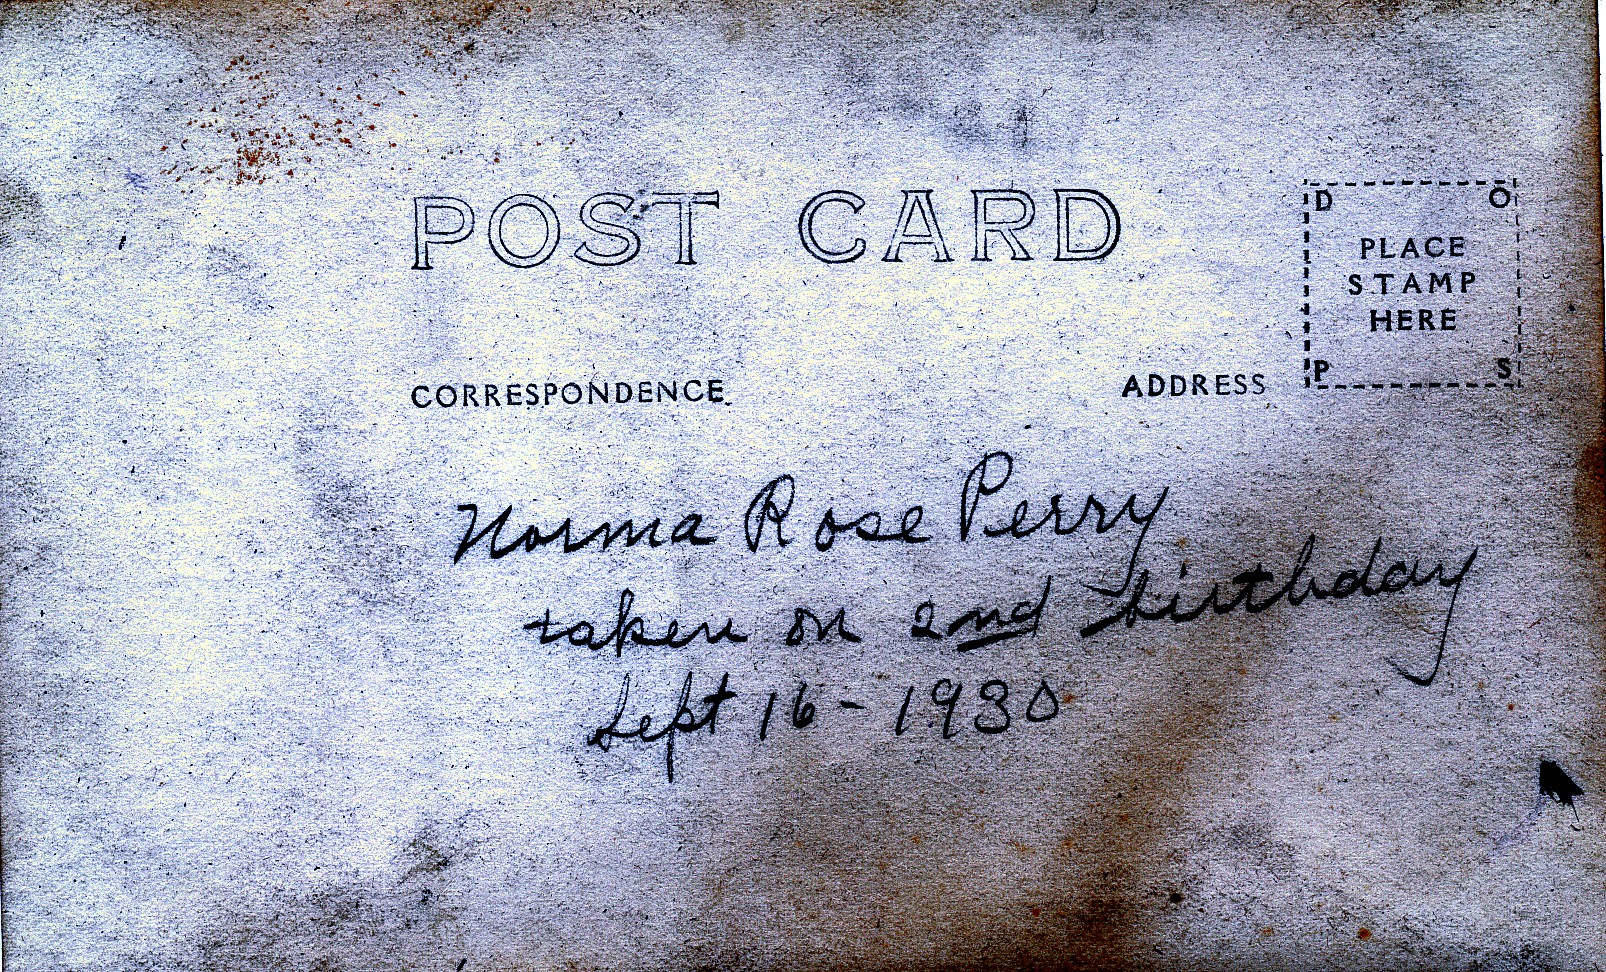 POST CARD
D O
PLACE
STAMP
HERE
P S
CORRESPONDENCE
ADDRESS
Norma Rose Perry
taken on 2nd birthday
Sept 16 - 1930